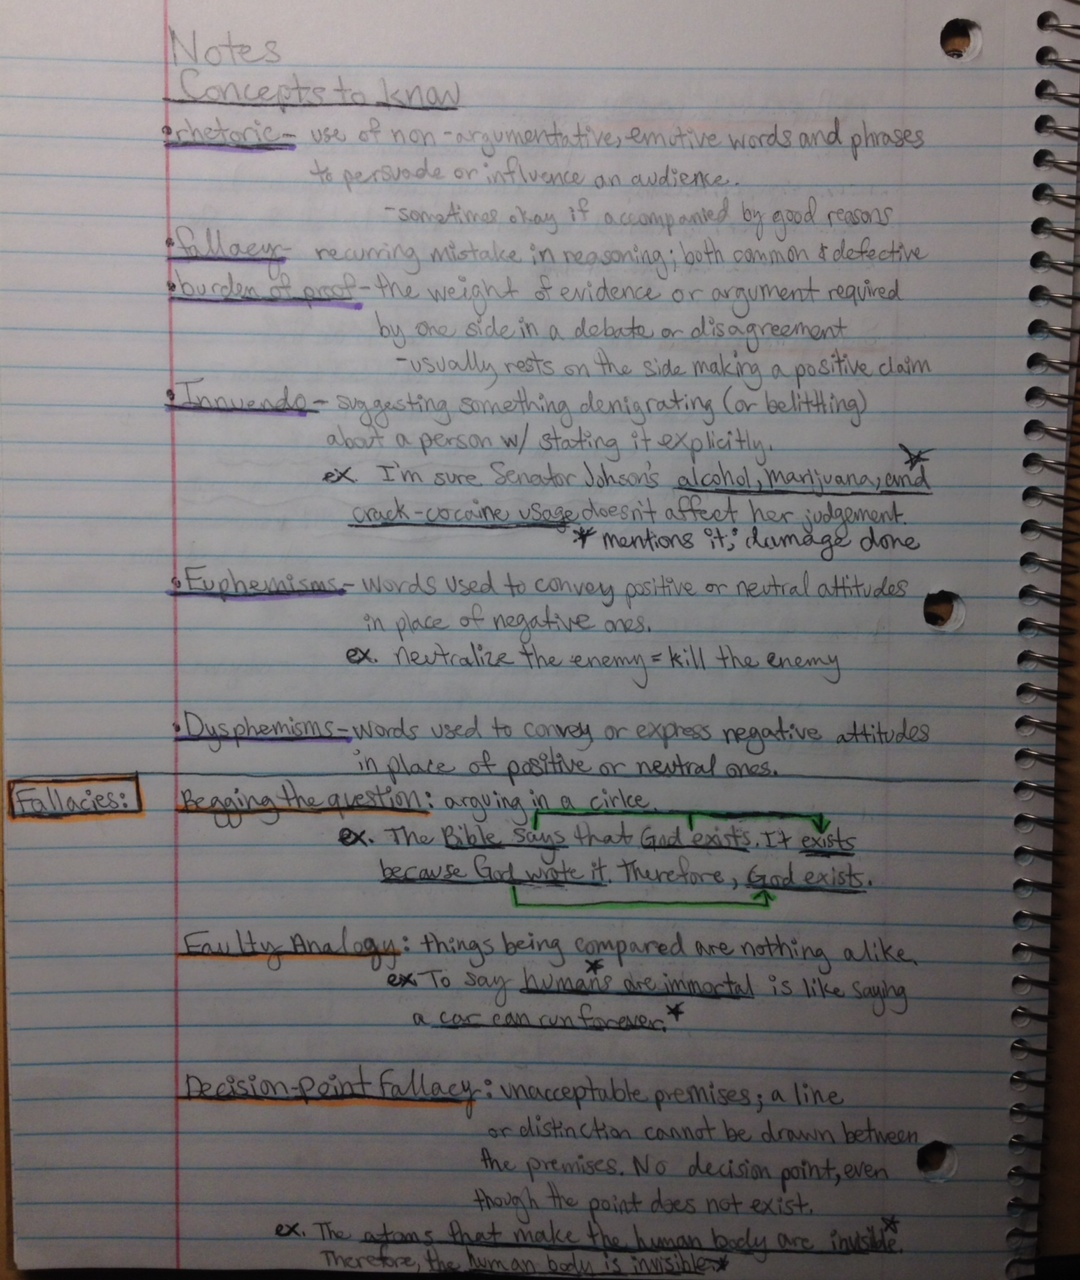 Notes
Concepts to know
• rhetoric - use of non-argumentative, emotive words and phrases
to persuade or influence an audience.
- sometimes okay if accompanied by good reasons
• fallacy - recurring mistake in reasoning; both common & defective
• burden of proof - the weight of evidence or argument required
by one side in a debate or disagreement
- usually rests on the side making a positive claim
• Innuendo - suggesting something denigrating (or belitthing)
about a person w/ stating it explicitly.
ex. I'm sure Senator Johson's alcohol, marijuana, and *
crack-cocaine usage doesn't affect her judgement.
* mentions it; damage done
• Euphemisms - words used to convey positive or neutral attitudes
in place of negative ones.
ex. neutralize the enemy = kill the enemy
• Dysphemisms - words used to convey or express negative attitudes
in place of positive or neutral ones.
Fallacies: Begging the question: arguing in a cirlce.
ex. The Bible says that God exists. It exists
because God wrote it. Therefore, God exists.
Faulty Analogy: things being compared are nothing alike.
ex. To say humans* are immortal is like saying
a car can run forever.*
Decision-point fallacy: unacceptable premises; a line
or distinction cannot be drawn between
the premises. No decision point, even
though the point does not exist.
ex. The atoms that make the human body are invisible*.
Therefore, the human body is invisible*